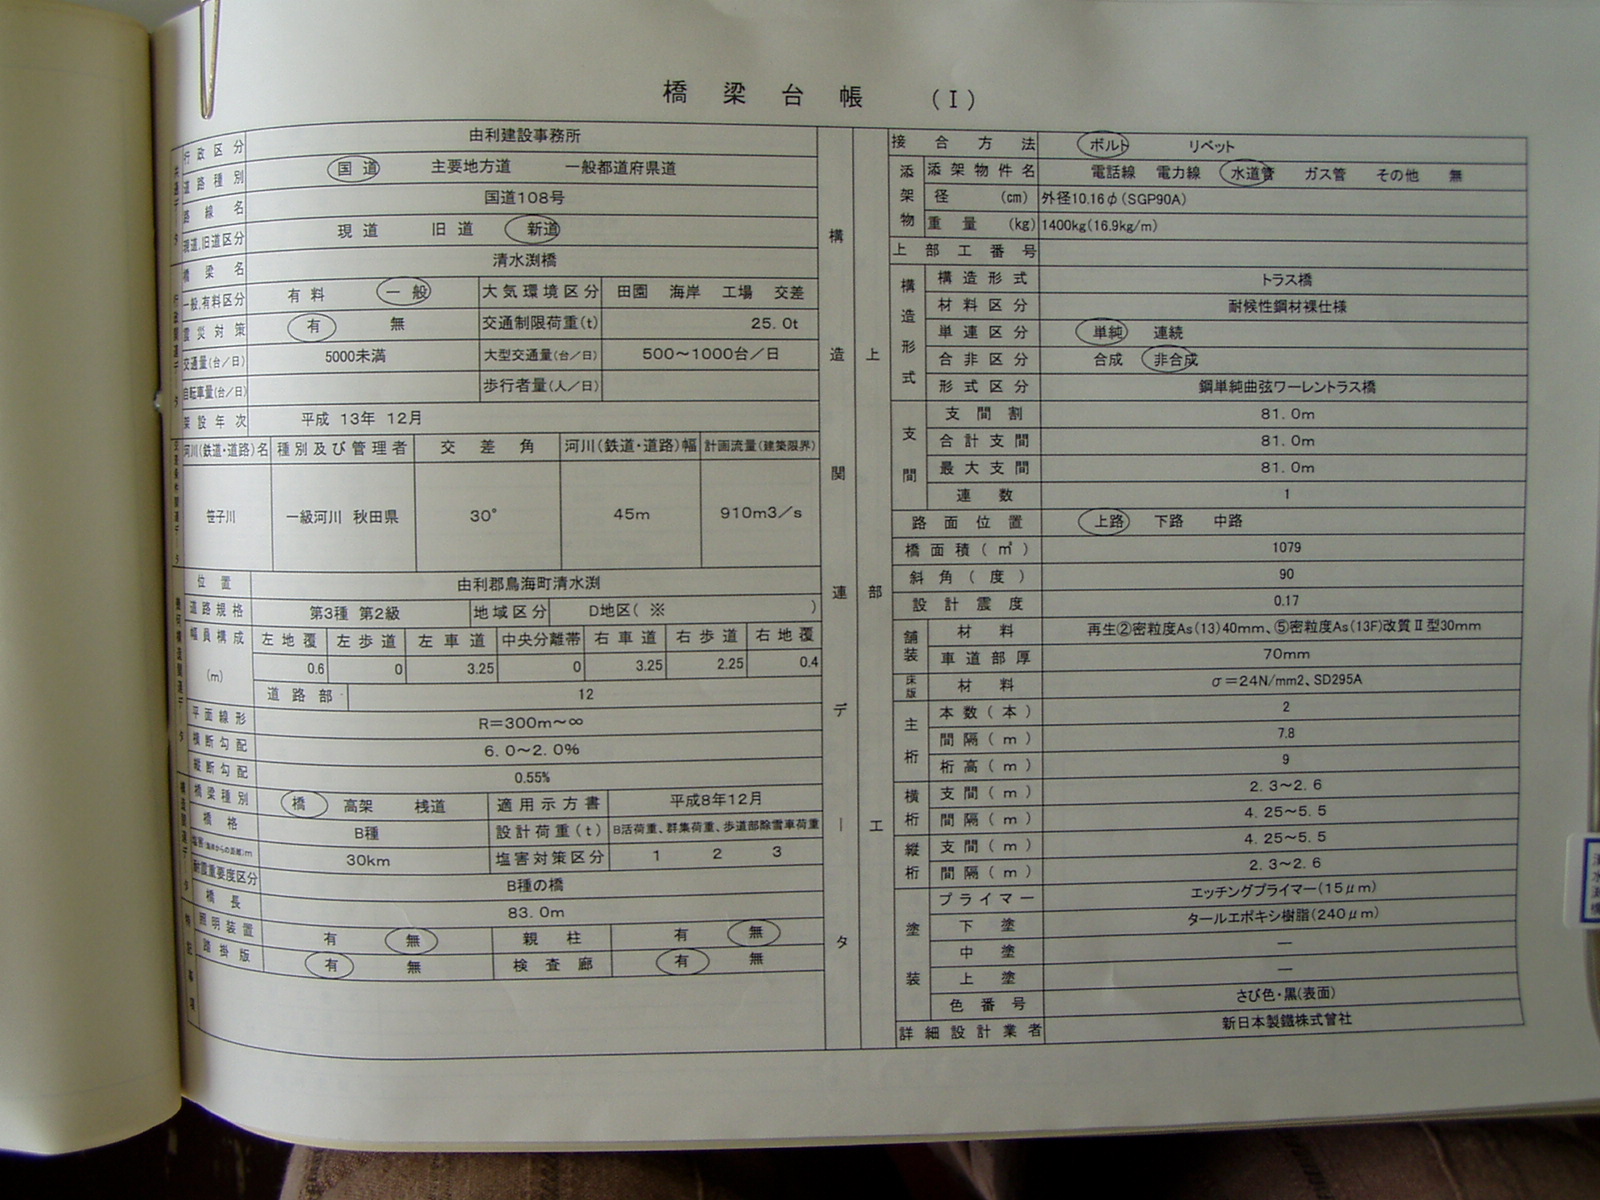 橋梁台帳 (Ⅰ)
行政区分 由利建設事務所
道路種別 国道 主要地方道 一般都道府県道
路線名 国道108号
現道,旧道区分 現道 旧道 新道
橋梁名 清水渕橋
一般,有料区分 有料 一般 大気環境区分 田園 海岸 工場 交差
雪災対策 有 無 交通制限荷重(t) 25.0t
交通量(台/日) 5000未満 大型交通量(台/日) 500~1000台/日
自転車量(台/日) 歩行者量(人/日)
架設年次 平成 13年 12月
河川(鉄道・道路)名 種別及び管理者 交差角 河川(鉄道・道路)幅 計画流量(建築限界)
笹子川 一級河川 秋田県 30° 45m 910m3/s
位置 由利郡鳥海町清水渕
道路規格 第3種 第2級 地域区分 D地区( ※ )
幅員構成 左地覆 左歩道 左車道 中央分離帯 右車道 右歩道 右地覆
(m) 0.6 0 3.25 0 3.25 2.25 0.4
道路部 12
平面線形 R=300m~∞
横断勾配 6.0~2.0%
縦断勾配 0.55%
橋梁種別 橋 高架 桟道 適用示方書 平成8年12月
橋格 B種 設計荷重(t) B活荷重、群集荷重、歩道部除雪車荷重
塩害(海岸からの距離)m 30km 塩害対策区分 1 2 3
耐震重要度区分 B種の橋
橋長 83.0m
照明装置 有 無 親柱 有 無
踏掛版 有 無 検査廊 有 無
特記事項
構造関連データ
上部工
接合方法 ボルト リベット
添架物
添架物件名 電話線 電力線 水道管 ガス管 その他 無
径 (cm) 外径10.16φ(SGP90A)
重量 (kg) 1400kg(16.9kg/m)
上部工番号
構造形式
構造形式 トラス橋
材料区分 耐候性鋼材裸仕様
単連区分 単純 連続
合非区分 合成 非合成
形式区分 鋼単純曲弦ワーレントラス橋
支間
支間割 81.0m
合計支間 81.0m
最大支間 81.0m
連数 1
路面位置 上路 下路 中路
橋面積(㎡) 1079
斜角(度) 90
設計震度 0.17
舗装
材料 再生②密粒度As(13)40mm、⑤密粒度As(13F)改質Ⅱ型30mm
車道部厚 70mm
床版 材料 σ=24N/mm2、SD295A
主桁
本数(本) 2
間隔(m) 7.8
桁高(m) 9
横桁
支間(m) 2.3~2.6
間隔(m) 4.25~5.5
縦桁
支間(m) 4.25~5.5
間隔(m) 2.3~2.6
塗装
プライマー エッチングプライマー(15μm)
下塗 タールエポキシ樹脂(240μm)
中塗 —
上塗 —
色番号 さび色・黒(表面)
詳細設計業者 新日本製鐵株式會社